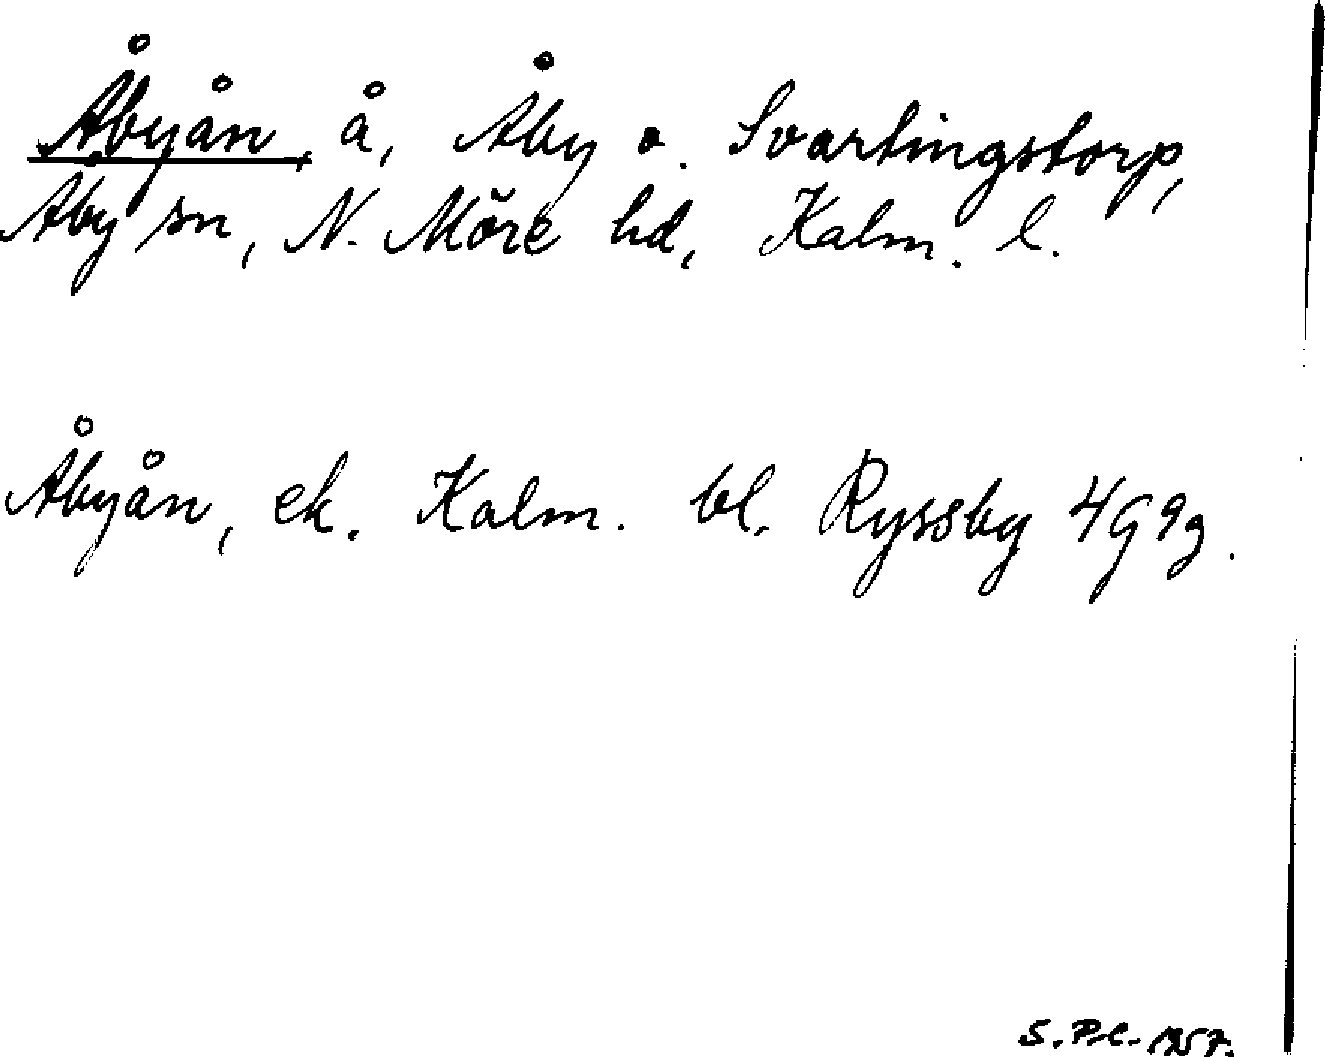 Åbyån, å, Åby o. Svartingstorp,
Åby sn, N. Möre hd, Kalm. l.
Åbyån, ek. Kalm. bl. Ryssby 4G9g.
S. P-l. 1957.